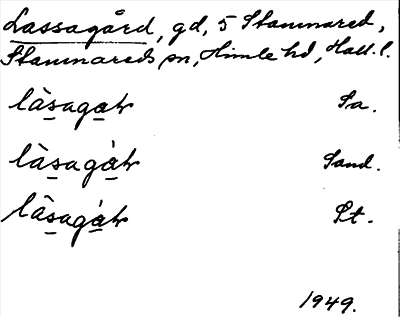 Lassagård, gd, 5 Stamnared,
Stamnareds sn, Himle hd, Hall. l.
làsagar Sa.
làsagàr Sand.
làsagàr Pt.
1949.